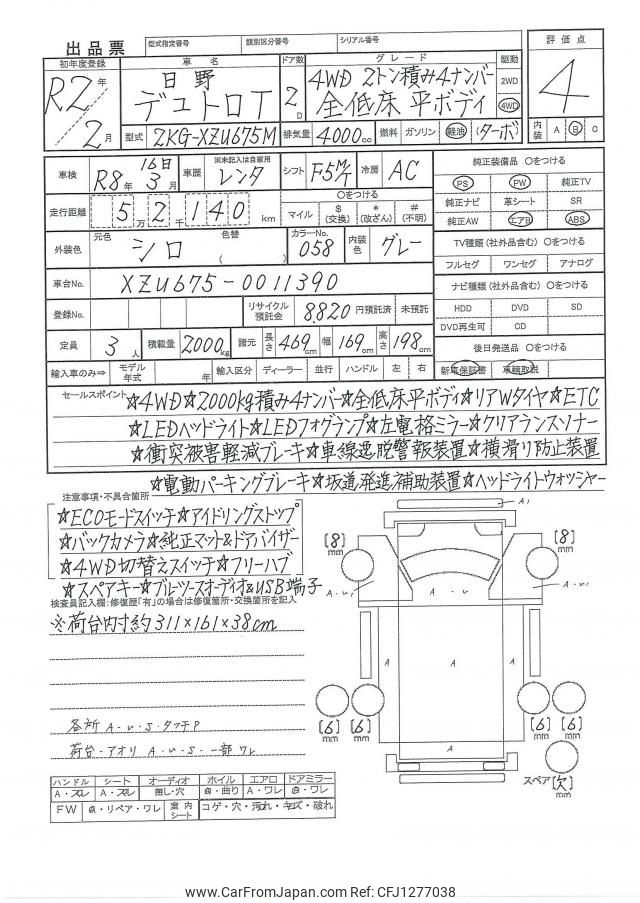 出品票
型式指定番号 類別区分番号 シリアル番号
初年度登録 車名 ドア数 グレード 駆動 評価点
R2年 日野 4WD 2トン積み4ナンバー 2WD
2月 デュトロT 2D 全低床 平ボディ 4WD 4
型式 2KG-XZU675M 排気量 4000cc 燃料 ガソリン 軽油 (ターボ) 内装 A B C
車検 R8年 3月 16日 車歴 ※未記入は自家用 レンタ シフト F5M/T 冷房 AC
純正装備品 ○をつける
PS PW 純正TV
純正ナビ 革シート SR
純正AW エアB ABS
走行距離 5万2千140km ○をつける マイル $(交換) *(改ざん) #(不明)
外装色 元色 シロ 色替 ( ) カラーNo. 058 内装色 グレー
TV種類(社外品含む) ○をつける
フルセグ ワンセグ アナログ
車台No. XZU675-0011390
ナビ種類(社外品含む) ○をつける
HDD DVD SD
DVD再生可 CD
登録No. リサイクル預託金 8,820円預託済 未預託
定員 3人 積載量 2000kg 諸元 長さ 469cm 幅 169cm 高さ 198cm
後日発送品 ○をつける
新車保証書 車輌取説
輸入車のみ⇒ モデル年式 年 輸入区分 ディーラー 並行 ハンドル 左 右
セールスポイント ☆4WD☆2000kg積み4ナンバー☆全低床平ボディ☆リアWタイヤ☆ETC
☆LEDヘッドライト☆LEDフォグランプ☆左電格ミラー☆クリアランスソナー
☆衝突被害軽減ブレーキ☆車線逸脱警報装置☆横滑り防止装置
☆電動パーキングブレーキ☆坂道発進補助装置☆ヘッドライトウォッシャー
注意事項・不具合箇所
☆ECOモードスイッチ☆アイドリングストップ
☆バックカメラ☆純正マット&ドアバイザー
☆4WD切替えスイッチ☆フリーハブ
☆スペアキー☆ブルーツースオーディオ&USB端子
検査員記入欄:修復歴「有」の場合は修復箇所・交換箇所を記入
※荷台内寸約311×161×38cm
各所 A・U・S・タッチP
荷台・アオリ A・U・S・一部ワレ
A1
[8]mm [8]mm
A・U1 A・U A・U1
A A A
[6]mm [6]mm [6]mm [6]mm
A
スペア[欠]mm
ハンドル シート オーディオ ホイル エアロ ドアミラー
A・スレ A・スレ 無し・穴 曲り A・ワレ ワレ
FW リペア・ワレ 室内シート コゲ・穴・汚れ・キズ・破れ
www.CarFromJapan.com Ref: CFJ1277038